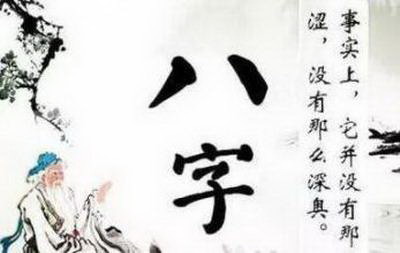 八字
事实上，它并没有那
涩，没有那么深奥。